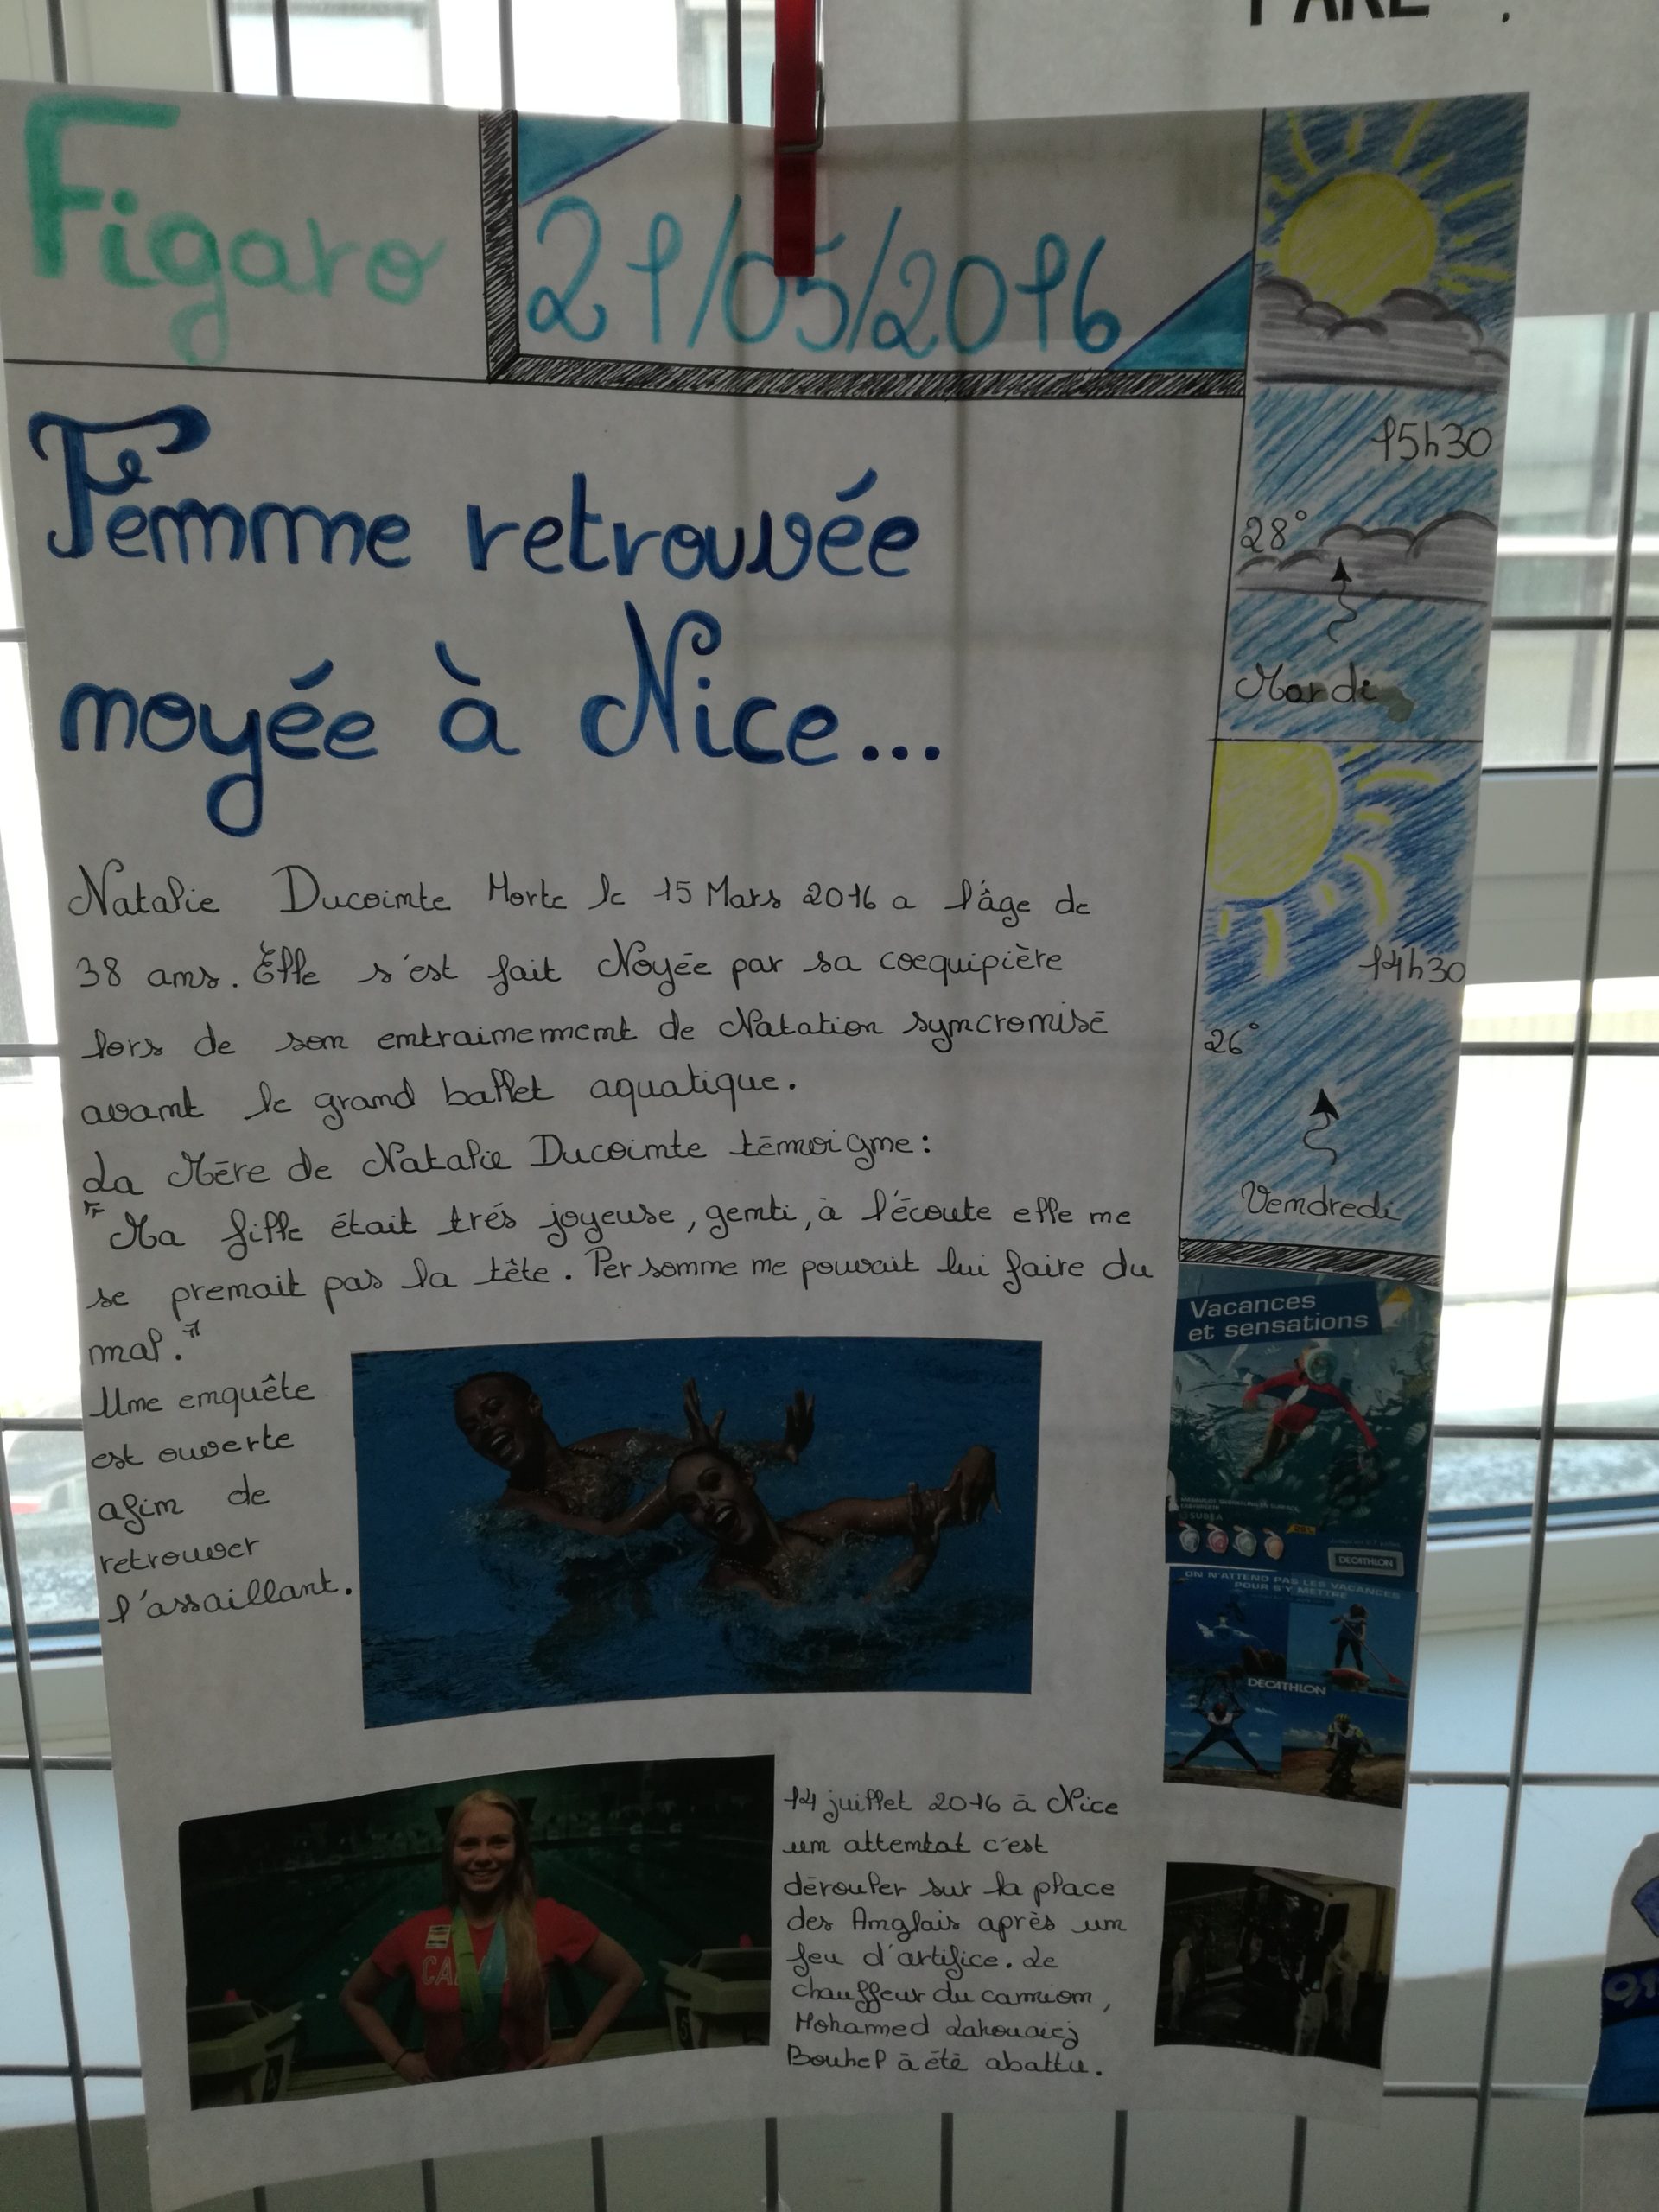 Figaro
21/05/2016
Femme retrouvée
noyée à Nice...
Natalie Ducointe Morte le 15 Mars 2016 a l'âge de
38 ans. Elle s'est fait Noyée par sa coequipière
lors de son entrainement de Natation syncronisé
avant le grand ballet aquatique.
La Mère de Natalie Ducointe témoigne:
"Ma fille était trés joyeuse, genti, à l'écoute elle ne
se prenait pas la tête. Personne ne pouvait lui faire du
mal."
Une enquête
est ouverte
afin de
retrouver
l'assaillant.
14 juillet 2016 à Nice
un attentat c'est
dérouler sur la place
des Anglais après un
feu d'artifice. Le
chauffeur du camion,
Mohamed Lahouaiej
Bouhel à été abattu.
15h30
28°
Mardi
14h30
26°
Vendredi
Vacances
et sensations
SUBEA
DECATHLON
ON N'ATTEND PAS LES VACANCES
POUR S'Y METTRE
DECATHLON